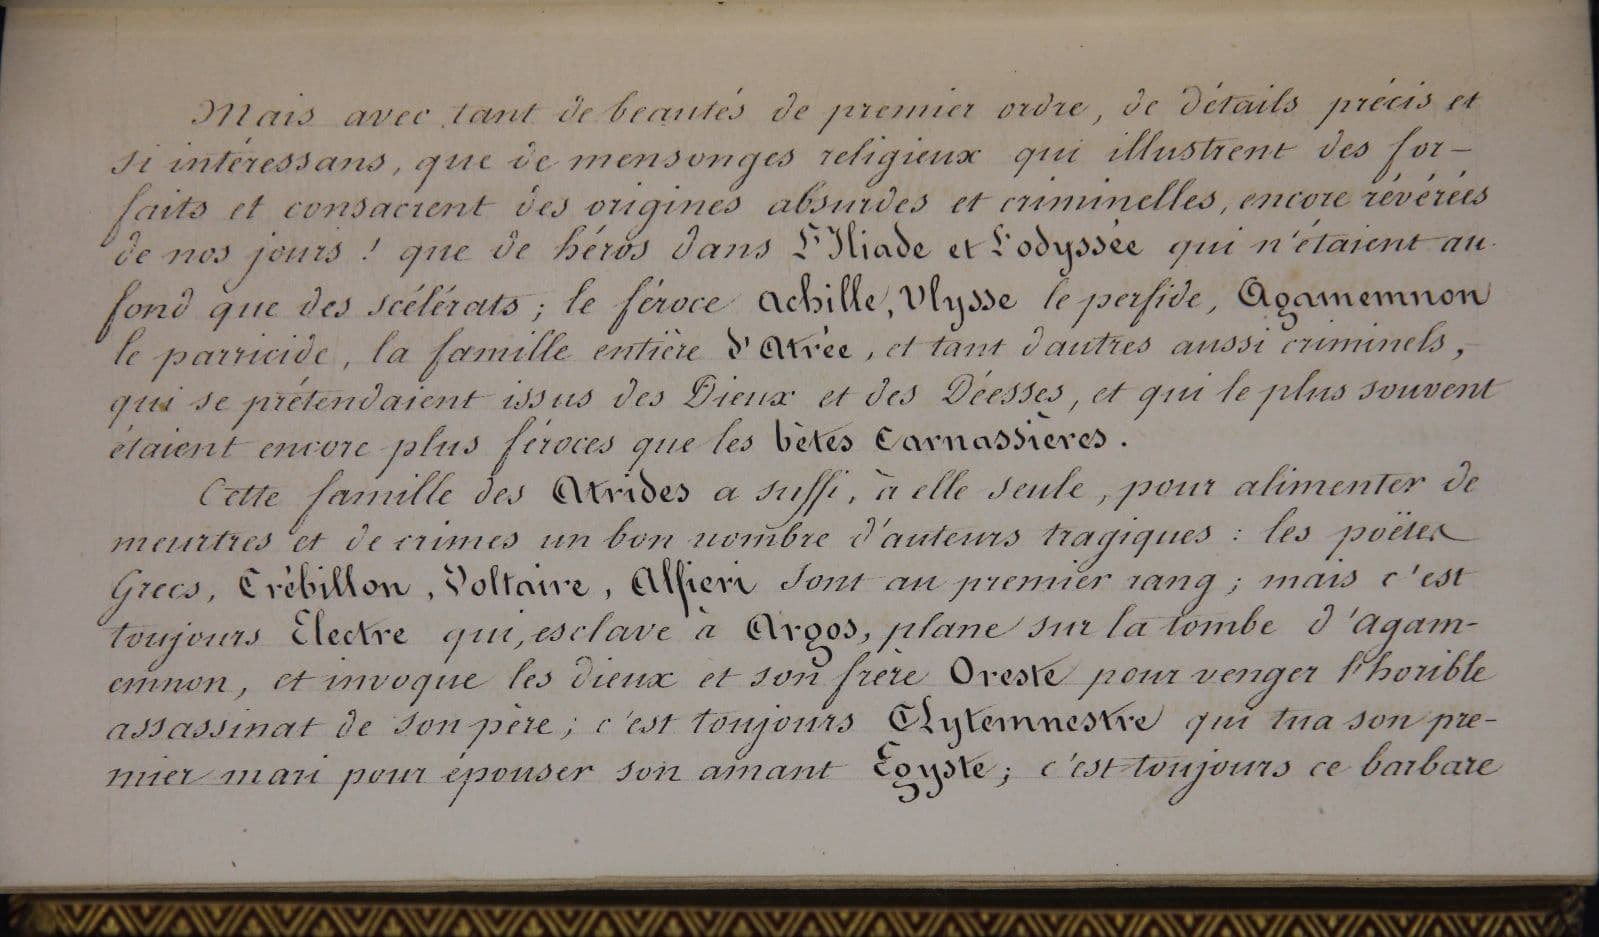 Mais avec tant de beautés de premier ordre, de détails précis et
si intéressans, que de mensonges religieux qui illustrent des for-
faits et consacrent des origines absurdes et criminelles, encore révérées
de nos jours ! que de héros dans L'Iliade et L'odyssée qui n'étaient au
fond que des scélérats ; le féroce Achille, Ulysse le perfide, Agamemnon
le parricide, la famille entière d'Atrée, et tant d'autres aussi criminels,
qui se prétendaient issus des Dieux et des Déesses, et qui le plus souvent
étaient encore plus féroces que les bêtes Carnassières.
Cette famille des Atrides a suffi, à elle seule, pour alimenter de
meurtres et de crimes un bon nombre d'auteurs tragiques : les poëtes
Grecs, Crébillon, Voltaire, Alfieri sont au premier rang ; mais c'est
toujours Electre qui, esclave à Argos, plane sur la tombe d'Agam-
emnon, et invoque les dieux et son frère Oreste pour venger l'horible
assassinat de son père ; c'est toujours Clytemnestre qui tua son pre-
mier mari pour épouser son amant Egyste ; c'est toujours ce barbare